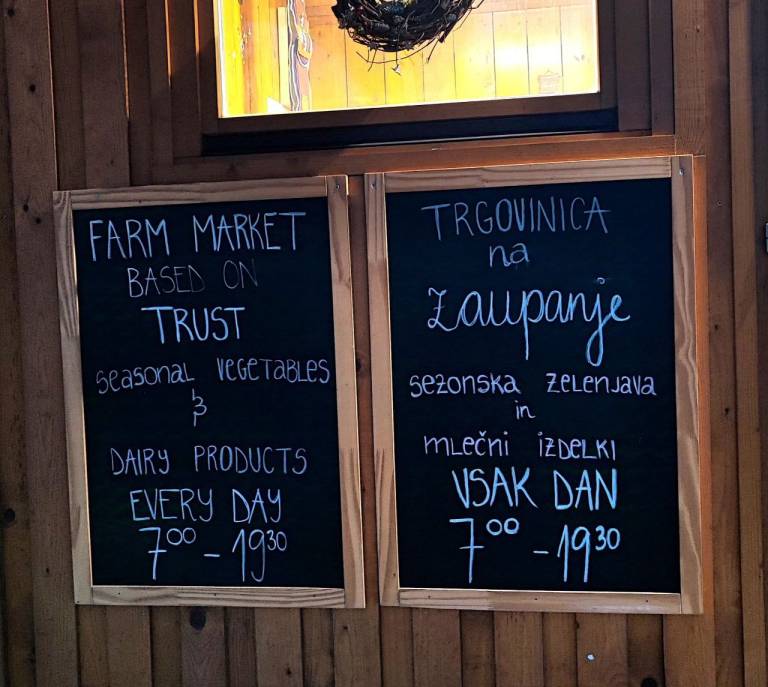 FARM MARKET
BASED ON
TRUST
SEASONAL VEGETABLES
&
DAIRY PRODUCTS
EVERY DAY
7⁰⁰ - 19³⁰
TRGOVINICA
na
zaupanje
SEZONSKA ZELENJAVA
in
MLEČNI IZDELKI
VSAK DAN
7⁰⁰ - 19³⁰